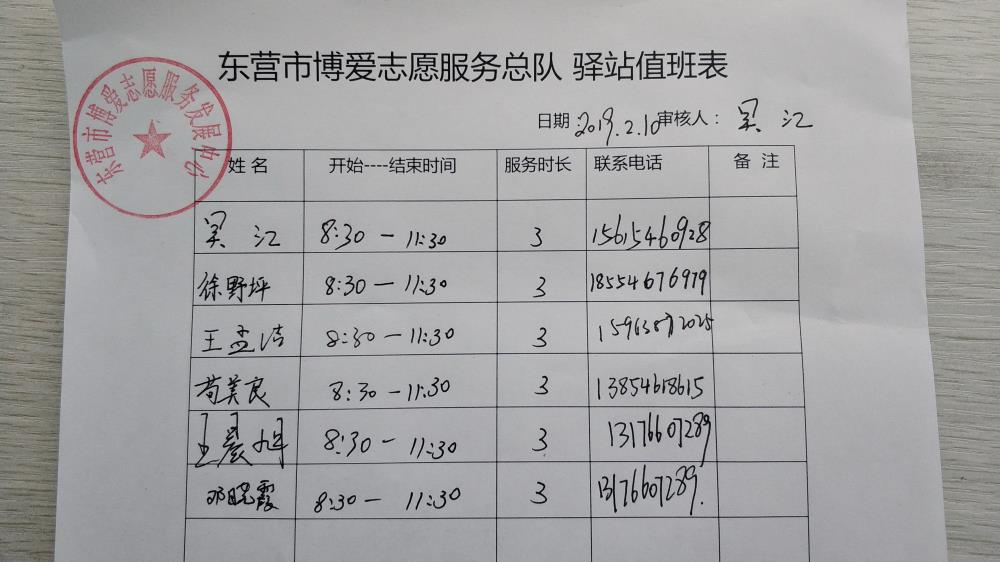 东营市博爱志愿服务总队 驿站值班表
东营市博爱志愿服务发展中心
日期:2019.2.10 审核人: 吴江
姓名 开始----结束时间 服务时长 联系电话 备注
吴江 8:30-11:30 3 15615460928
徐野坪 8:30-11:30 3 18554676979
王孟洁 8:30-11:30 3
苟美良 8:30-11:30 3 13854618615
王晨旭 8:30-11:30 3 13176607289
邓晓霞 8:30-11:30 3 13176607289.